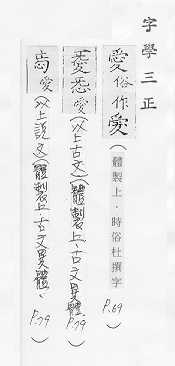 字學三正
愛俗作愛(體製上.時俗杜撰字 P.69)
愛㤅愛(以上古文)(體製上.古文異體 P.79)
㤅愛(以上說文)(體製上.古文異體、P.79)